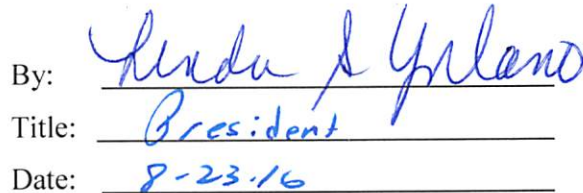 By: Linda S
Title: President
Date: 8-23-16